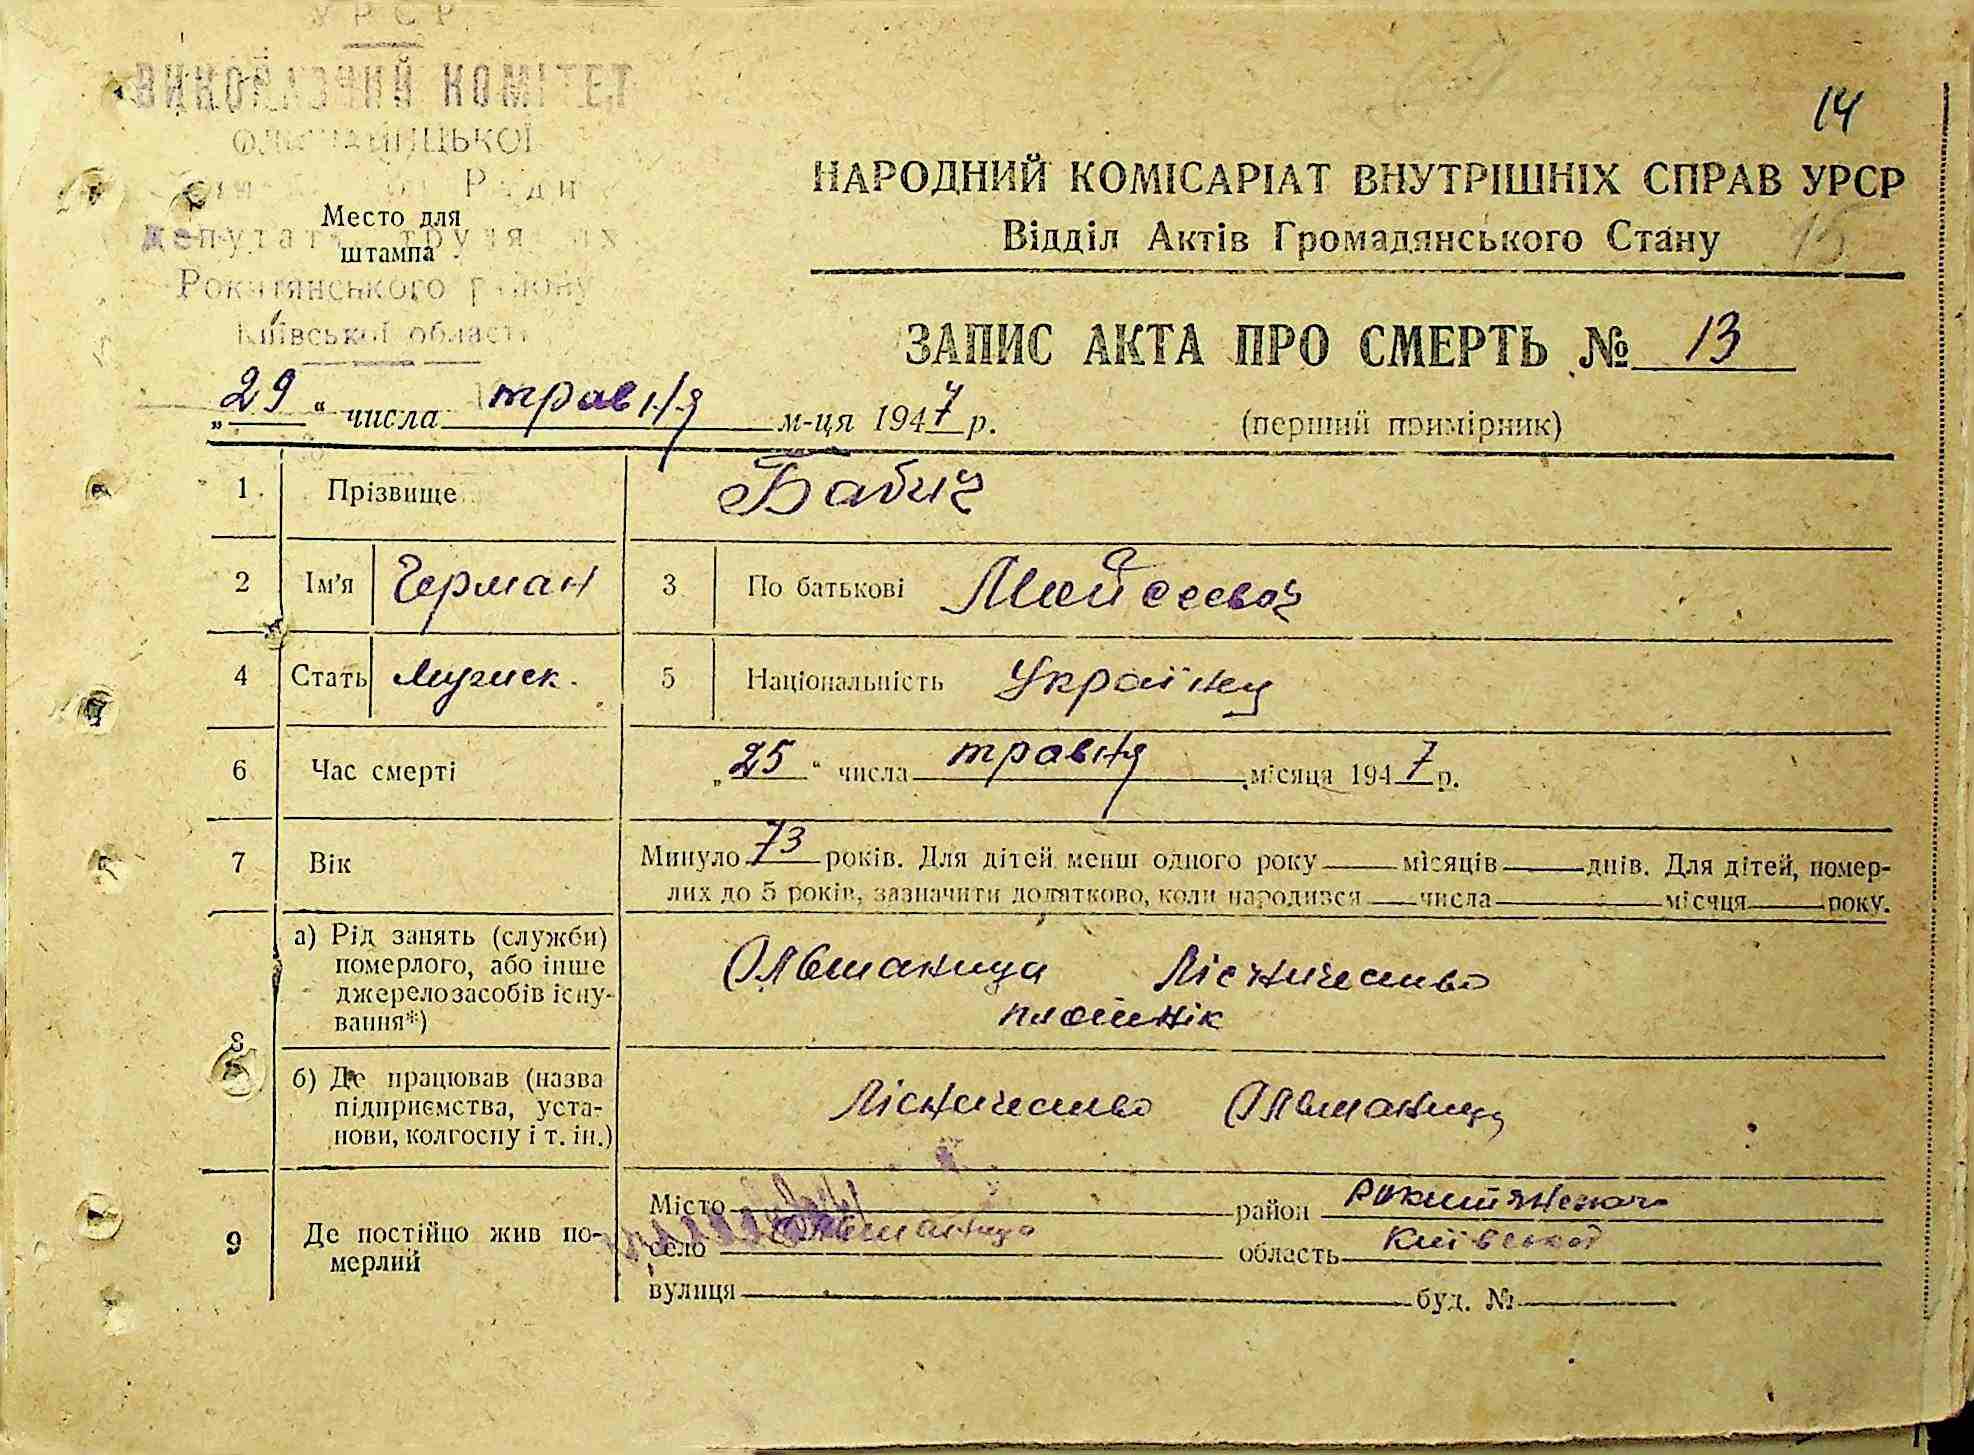 УРСР
ВИКОНАВЧИЙ КОМІТЕТ
ОЛЬШАНИЦЬКОЇ
Ради
депутатів трудящих
Рокитянського району
Київської області
Место для
штампа
14
НАРОДНИЙ КОМІСАРІАТ ВНУТРІШНІХ СПРАВ УРСР
Відділ Актів Громадянського Стану 15
ЗАПИС АКТА ПРО СМЕРТЬ № 13
„29“ числа травня м-ця 1947 р.
(перший примірник)
1 Прізвище Бабич
2 Ім'я Герман 3 По батькові Мойсеевич
4 Стать Мужеск. 5 Національність Українц
6 Час смерті „25“ числа травня місяця 1947 р.
7 Вік Минуло 73 років. Для дітей менш одного року місяців днів. Для дітей, помер-
лих до 5 років, зазначити додатково, коли народився числа місяця року.
8 а) Рід занять (служби)
померлого, або інше
джерело засобів існу-
вання*)
Ольшаница Лісничество
плотнік
б) Де працював (назва
підприємства, уста-
нови, колгоспу і т. ін.)
Лісничество Ольшаниця
9 Де постійно жив по-
мерлий
Місто район Рокитянского
село Ольшаница область Київської
вулиця буд. №